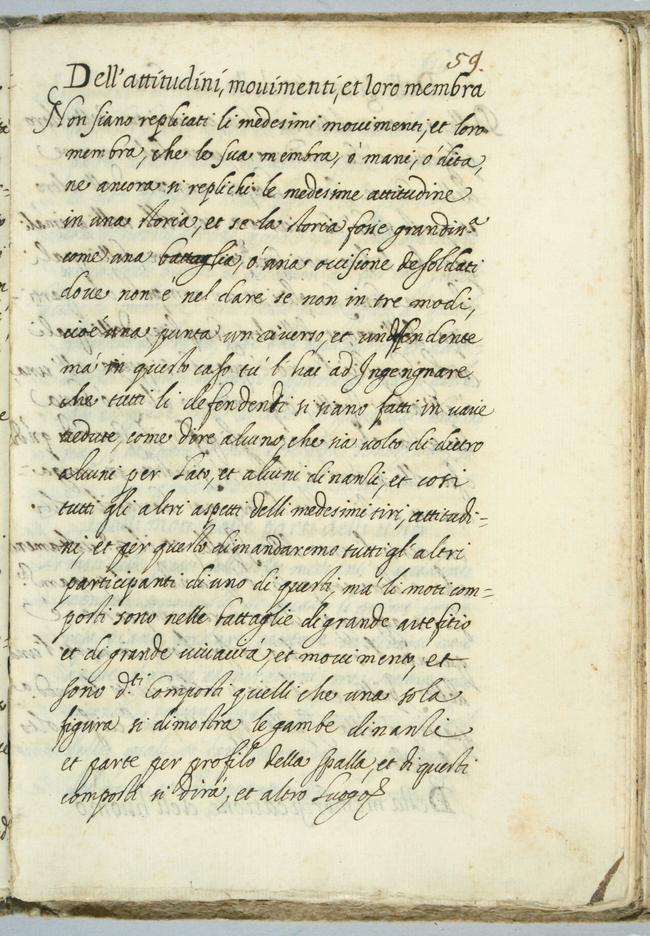 59.
Dell'attitudini, mouimenti, et loro membra
Non siano replicati li medesimi mouimenti, et loro
membra, che le sua membra, ò mani, ò dita,
ne ancora si replichi le medesime attitudine
in una storia, et se la storia fosse grandiss.ª
come una battaglia, ò una occisione de soldati
doue non è nel dare se non in tre modi,
cioè una punta un riuerso, et un defendente
mà in questo caso tu t'hai ad Ingengnare
che tutti li defendendi si siano fatti in uarie
uedute, come dire alcuno, che sia uolto di dietro
alcuni per Lato, et alcuni dinanzi, et così
tutti gli altri aspetti delli medesimi tiri, attitudi=
ni, et per questo dimandaremo tutti gl'altri
participanti di uno di questi, mà li moti com=
posti sono nelle battaglie di grande artefitio
et di grande uiuacità, et mouimento, et
sono d.ti Composti quelli che una sola
figura si dimostra le gambe dinanzi
et parte per profilo della spalla, et di questi
composti si dirà, et altro Luogo